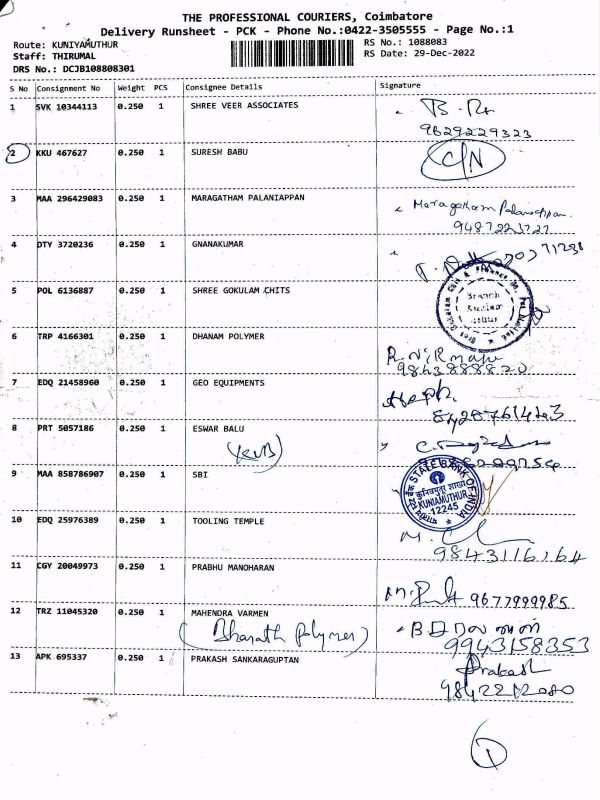 THE PROFESSIONAL COURIERS, Coimbatore
Delivery Runsheet - PCK - Phone No.:0422-3505555 - Page No.:1
Route: KUNIYAMUTHUR
RS No.: 1088083
Staff: THIRUMAL
RS Date: 29-Dec-2022
DRS No.: DCJB108808301
S No Consignment No Weight PCS Consignee Details Signature
1 SVK 10344113 0.250 1 SHREE VEER ASSOCIATES
9629229323
2 KKU 467627 0.250 1 SURESH BABU C/N
3 MAA 296429083 0.250 1 MARAGATHAM PALANIAPPAN Maragatham Palaniappan
4 DTY 3720236 0.250 1 GNANAKUMAR
5 POL 6136887 0.250 1 SHREE GOKULAM CHITS
Branch
6 TRP 4166301 0.250 1 DHANAM POLYMER R. Nirmala
9843888820
7 EDQ 21458960 0.250 1 GEO EQUIPMENTS
8 PRT 5057186 0.250 1 ESWAR BALU
(KVB)
9 MAA 858786907 0.250 1 SBI
STATE BANK OF INDIA
कुनियमुत्तूर शाखा
KUNIAMUTHUR
12245
10 EDQ 25976389 0.250 1 TOOLING TEMPLE
9843116164
11 CGY 20049973 0.250 1 PRABHU MANOHARAN
9677999985
12 TRZ 11045320 0.250 1 MAHENDRA VARMEN
(Bharath polymer)
9943158353
13 APK 695337 0.250 1 PRAKASH SANKARAGUPTAN Prakash